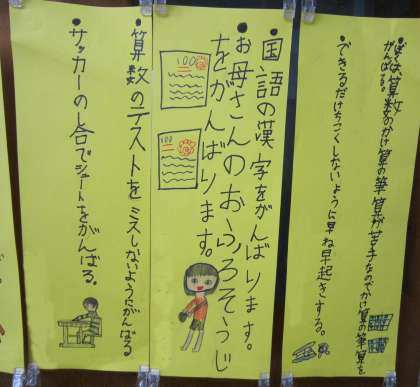 ・ぼくは算数のかけ算の筆算が苦手なのでかけ算の筆算を
がんばる。
・できるだけちこくしないように早ね早起きする。
・国語の漢字をがんばります。
・お母さんのおふろそうじ
をがんばります。
100
100
・算数のテストをミスしないようにがんばる
・サッカーのし合でシュートをがんばる。